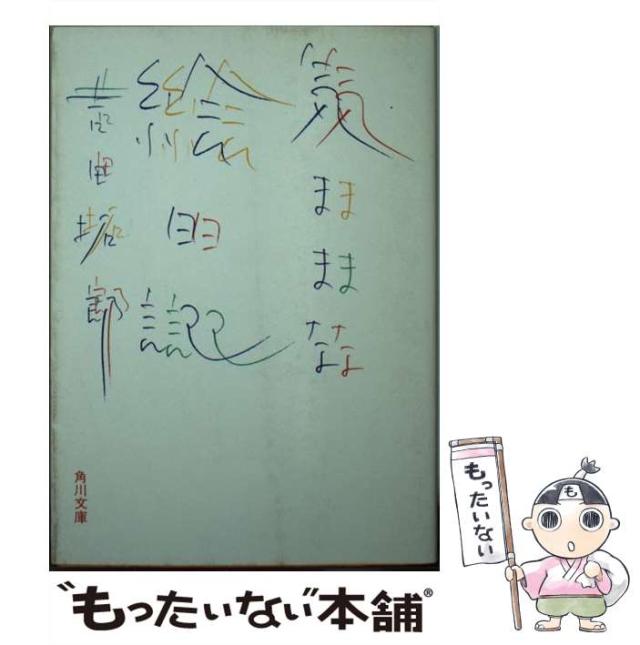 気ままな
絵日記
吉田拓郎
角川文庫
も
もったいない
"もったいない"本舗®